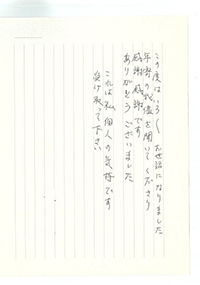 この度はいろ〱お世話になりました
年寄の我儘を聞いてくださり
感謝感謝です
ありがとうございました
これは私個人の気持です
受け取って下さい